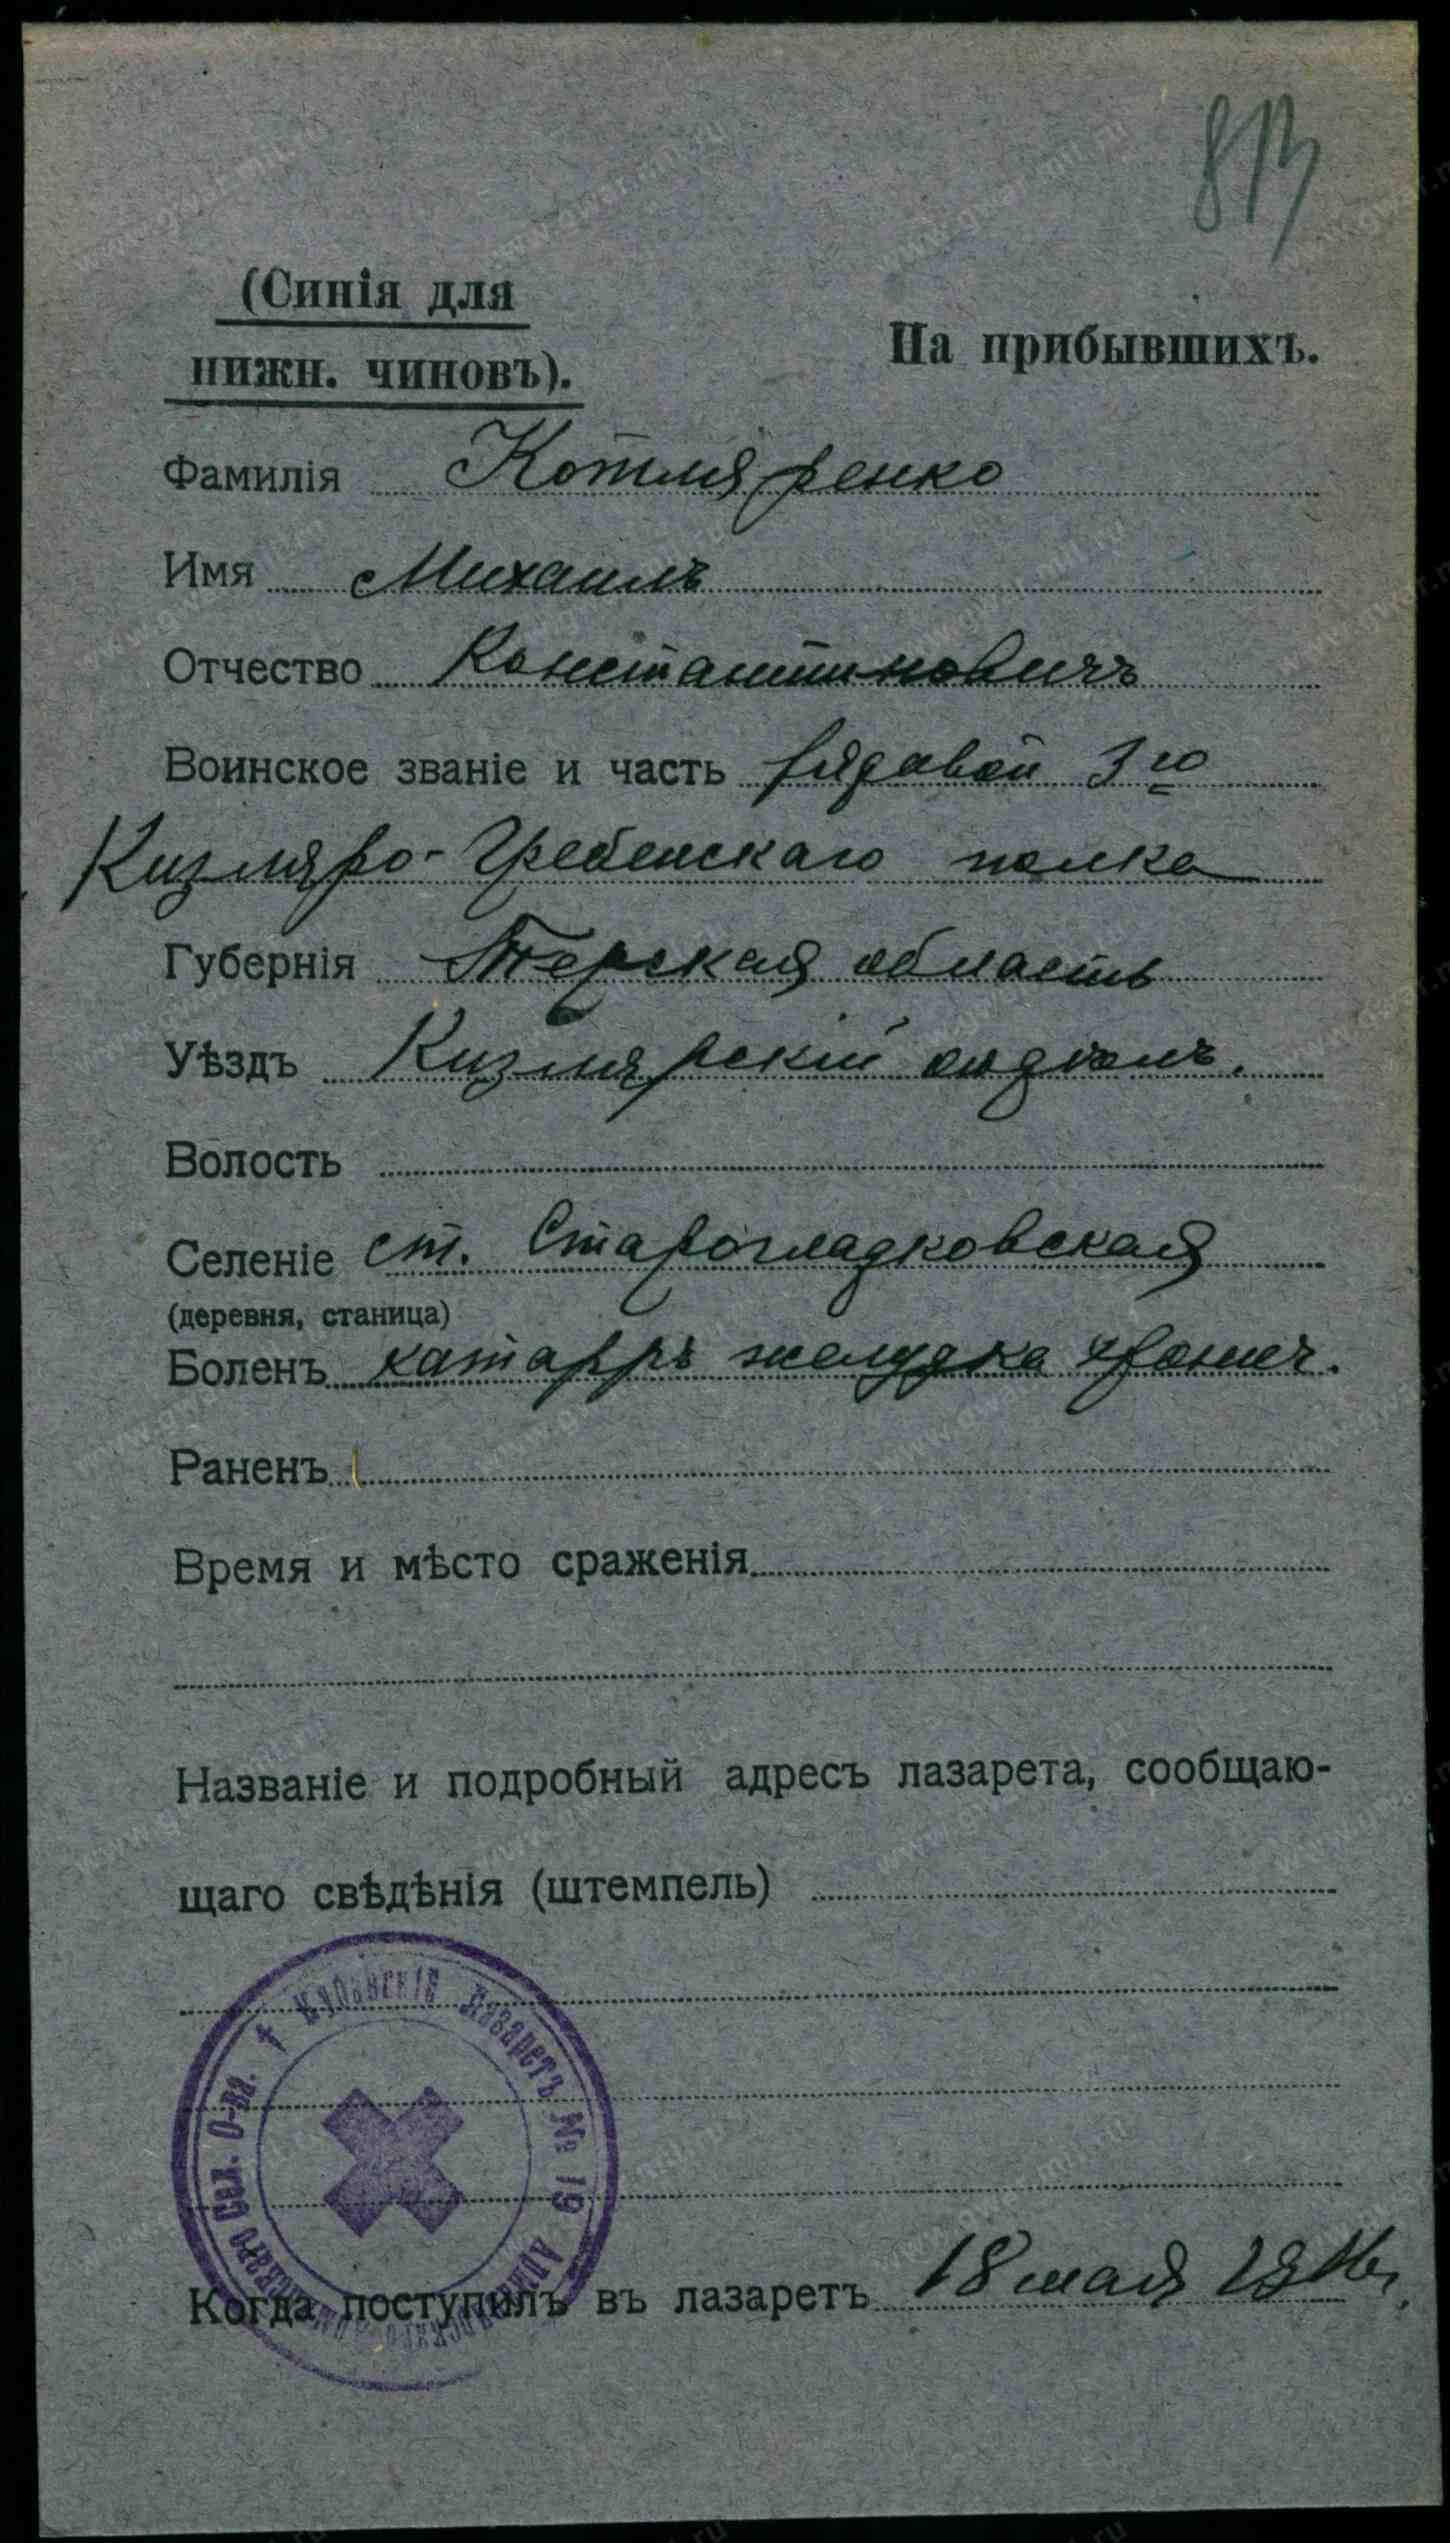 813
(Синія для
нижн. чиновъ).
На прибывшихъ.
Фамилія Котляренко
Имя Михаилъ
Отчество Константиновичъ
Воинское званіе и часть рядовой 3го
Кизляро-Гребенскаго полка
Губернія Терская область
Уѣздъ Кизлярскій отдѣлъ.
Волость
Селеніе ст. Старогладковская
(деревня, станица)
Боленъ катарръ желудка хронич.
Раненъ
Время и мѣсто сраженія
Названіе и подробный адресъ лазарета, сообщаю-
щаго свѣдѣнія (штемпель)
† Кубанскій Лазаретъ № 19 О-ва.
Когда поступилъ въ лазаретъ 18 мая